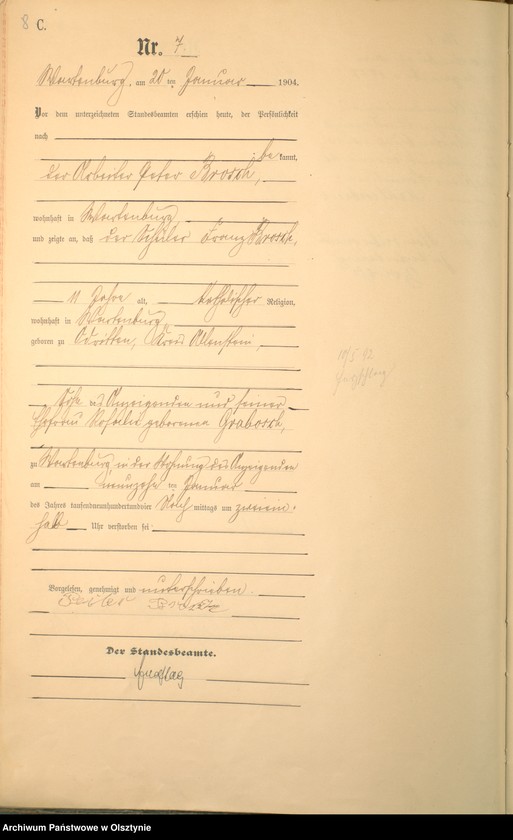 8 C.
Nr. 7.
Wartenburg, am 20 ten Januar 1904.
Vor dem unterzeichneten Standesbeamten erschien heute, der Persönlichkeit
nach
be kannt,
der Arbeiter Peter Brosch,
wohnhaft in Wartenburg
und zeigte an, daß der Schüler Franz Brosch,
11 Jahre alt, katholischer Religion,
wohnhaft in Wartenburg
geboren zu Odritten, Kreis Allenstein,
Sohn des Anzeigenden und seiner
Ehefrau Rosalie geborenen Grabosch,
zu Wartenburg in der Wohnung des Anzeigenden
am neunzehn ten Januar
des Jahres tausendneunhundertundvier Nach mittags um
halb Uhr verstorben sei
Vorgelesen, genehmigt und unterschrieben.
Peter Brosch
Der Standesbeamte.
Archiwum Państwowe w Olsztynie